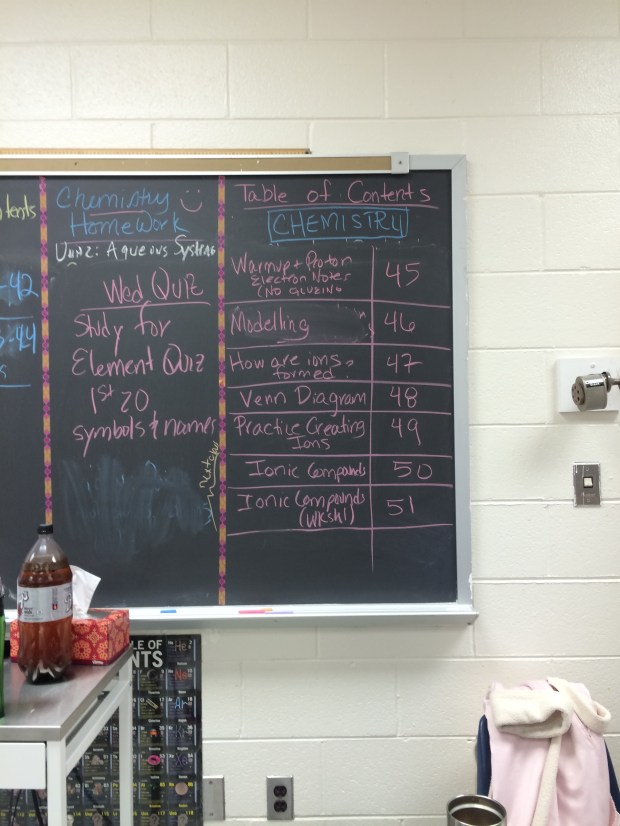 tents
-42
-44
s
Chemistry
Homework
Unit 2: Aqueous Systems
Wed Quiz
Study for
Element Quiz
1st 20
symbols & names
Table of Contents
CHEMISTRY
Warmup + Proton
Electron Notes
(NO GLUEING
45
Modelling
46
How are ions
formed?
47
Venn Diagram
48
Practice Creating
Ions
49
Ionic Compounds
50
Ionic Compounds
(WKsht)
51
LE OF
NTS
He
Ne
Ar